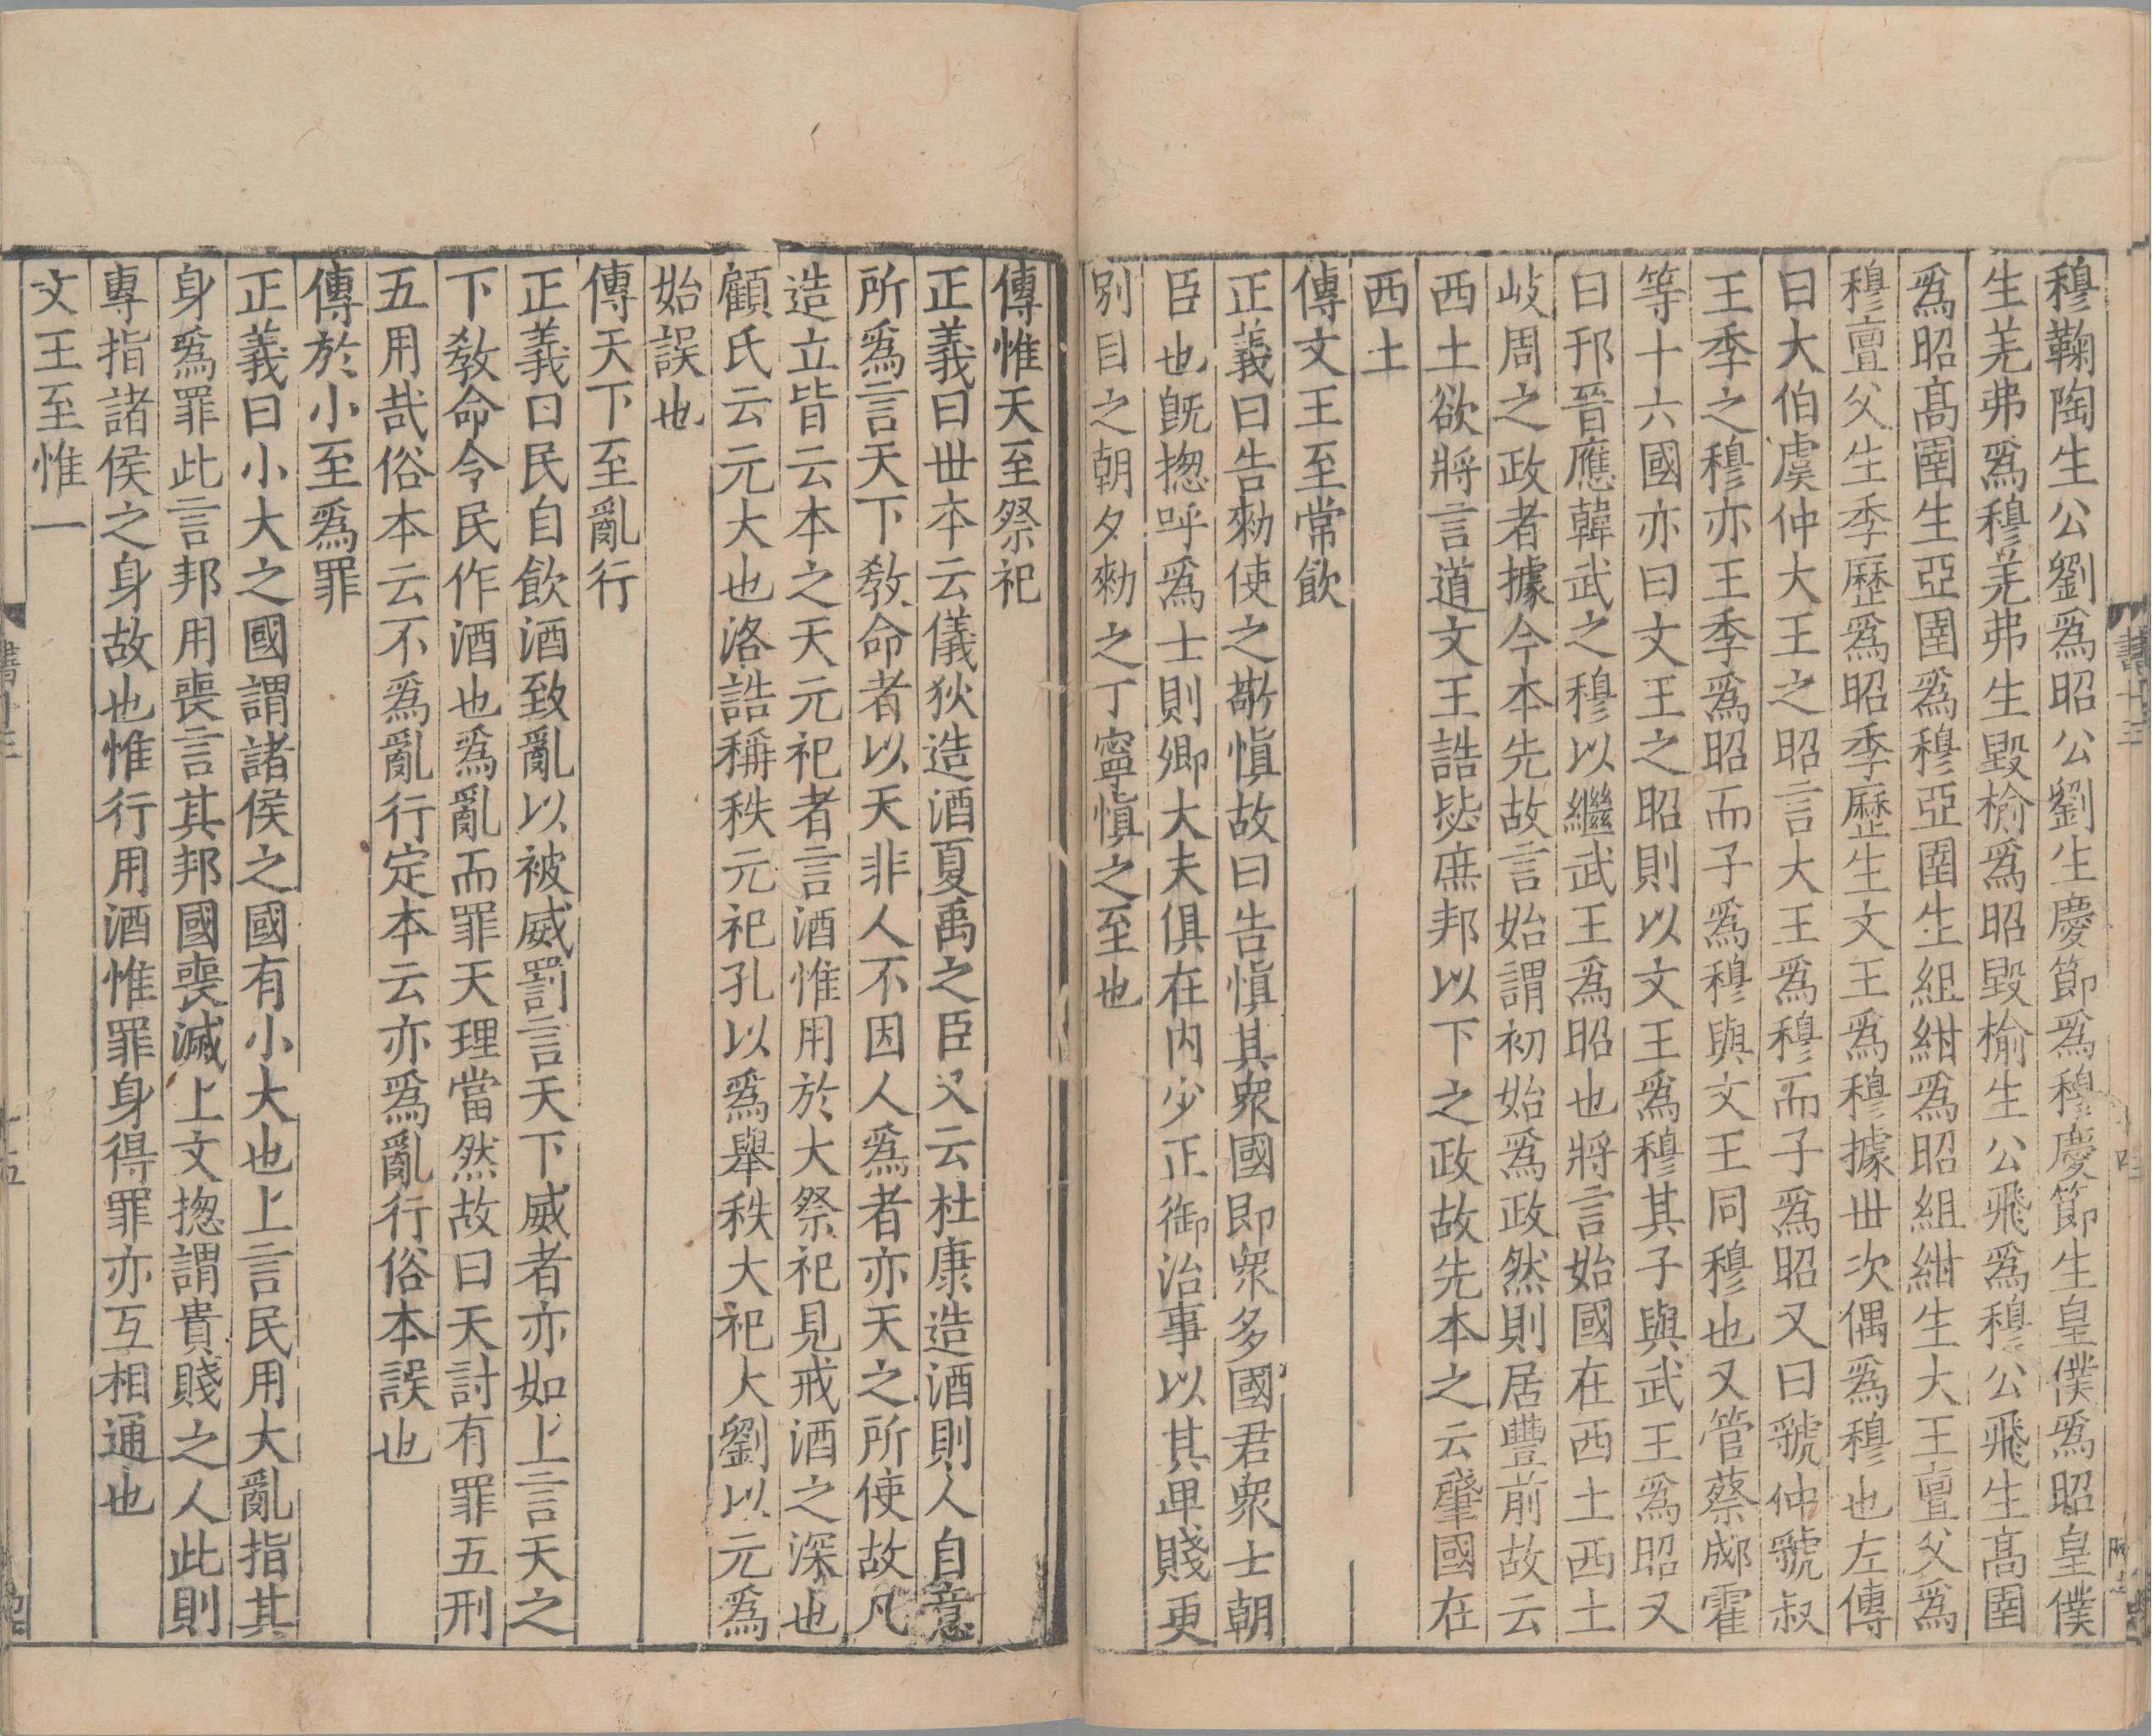 穆鞠陶生公劉爲昭公劉生慶節爲穆慶節生皇僕爲昭皇僕
生羌弗爲穆羌弗生毀榆爲昭毀榆生公飛爲穆公飛生髙圉
爲昭髙圉生亞圉爲穆亞圉生組紺爲昭組紺生大王亶父爲
穆亶父生季歷爲昭季歷生文王爲穆據丗次偶爲穆也左傳
曰大伯虞仲大王之昭言大王爲穆而子爲昭又曰虢仲虢叔
王季之穆亦王季爲昭而子爲穆與文王同穆也又管蔡郕霍
等十六國亦曰文王之昭則以文王爲穆其子與武王爲昭又
曰邘晉應韓武之穆以繼武王爲昭也將言始國在西土西土
岐周之政者據今本先故言始謂初始爲政然則居豐前故云
西土欲將言道文王誥毖庶邦以下之政故先本之云肇國在
西土
傳文王至常飲
正義曰告勑使之敬愼故曰告愼其衆國即衆多國君衆士朝
臣也旣揔呼爲士則卿大夫俱在内少正御治事以其卑賤更
別目之朝夕勑之丁寧愼之至也
傳惟天至祭祀
正義曰丗本云儀狄造酒夏禹之臣又云杜康造酒則人自意
所爲言天下敎命者以天非人不因人爲者亦天之所使故凡
造立皆云本之天元祀者言酒惟用於大祭祀見戒酒之深也
顧氏云元大也洛誥稱秩元祀孔以爲舉秩大祀大劉以元爲
始誤也
傳天下至亂行
正義曰民自飲酒致亂以被威罰言天下威者亦如上言天之
下敎命令民作酒也爲亂而罪天理當然故曰天討有罪五刑
五用哉俗本云不爲亂行定本云亦爲亂行俗本誤也
傳於小至爲罪
正義曰小大之國謂諸侯之國有小大也上言民用大亂指其
身爲罪此言邦用喪言其邦國喪滅上文揔謂貴賤之人此則
專指諸侯之身故也惟行用酒惟罪身得罪亦互相通也
文王至惟一